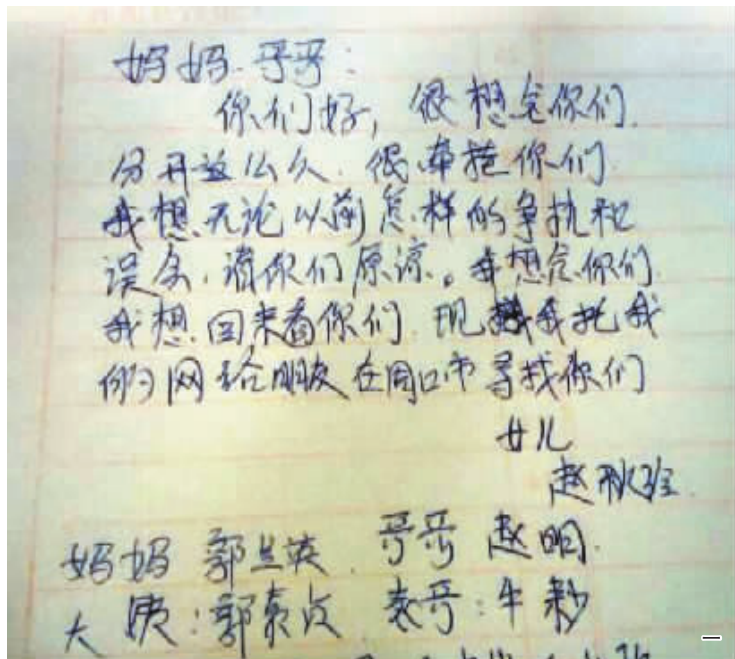 妈妈.哥哥:
你们好,很想念你们.
分开这么久.很牵挂你们
我想.无论以前怎样的争执和
误会.请你们原谅。我想念你们.
我想回来看你们.现 我托我
们网络朋友在周口市寻找你们
女儿
赵秋
妈妈 郭兰英.哥哥 赵明.
大姨:郭 表哥:牛